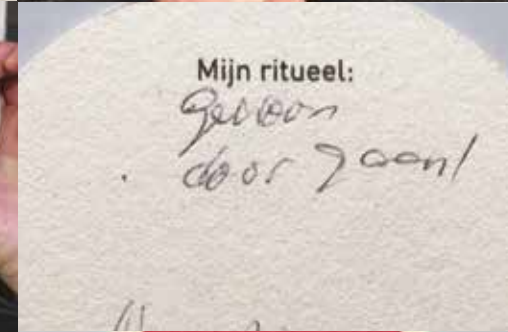 Mijn ritueel:
gewoon
door gaan!